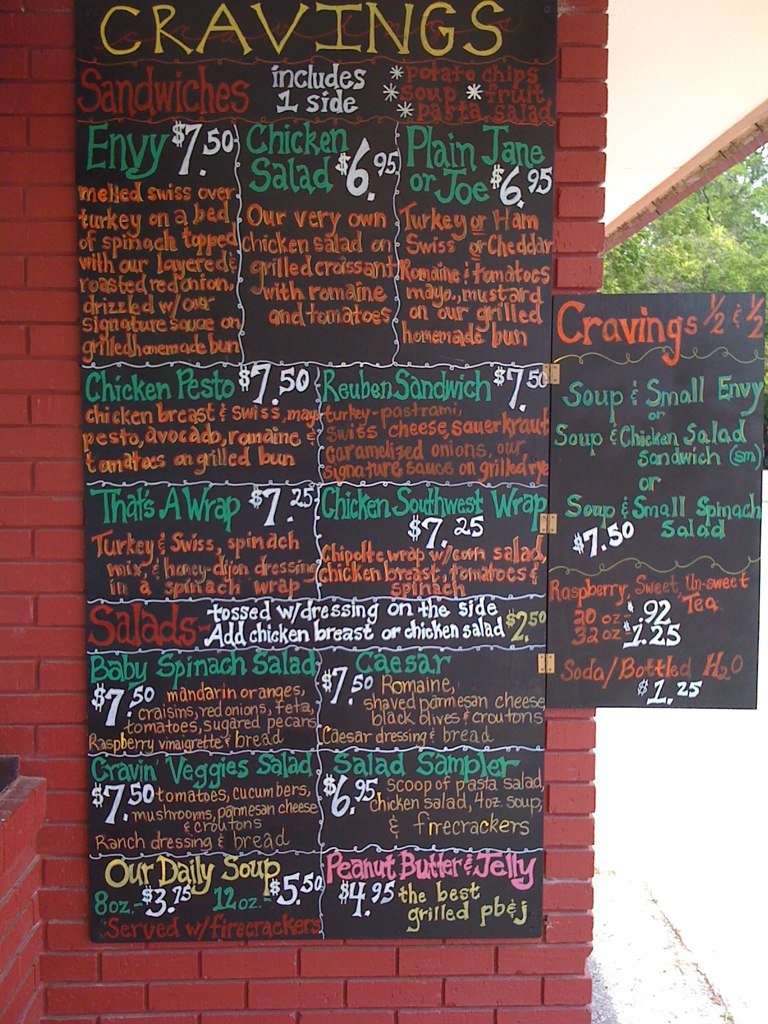 CRAVINGS
Sandwiches
includes
1 side
* potato chips
* soup * fruit
* pasta salad
Envy $7.50
melted swiss over
turkey on a bed
of spinach topped
with our layered &
roasted red onion,
drizzled w/our
signature sauce on
grilled homemade bun
Chicken
Salad $6.95
Our very own
chicken salad on
grilled croissant
with romaine
and tomatoes
Plain Jane
or Joe $6.95
Turkey or Ham
Swiss or Cheddar
Romaine & tomatoes
mayo, mustard
on our grilled
homemade bun
Chicken Pesto $7.50
chicken breast & swiss, mayo
pesto, avocado, romaine &
tomatoes on grilled bun
Reuben Sandwich $7.50
turkey-pastrami,
swiss cheese, sauerkraut
caramelized onions, our
signature sauce on grilled rye
That's A Wrap $7.25
Turkey & Swiss, spinach
mix, & honey-dijon dressing
in a spinach wrap
Chicken Southwest Wrap
$7.25
Chipotle wrap w/corn salad,
chicken breast, tomatoes &
spinach
Salads- tossed w/dressing on the side
Add chicken breast or chicken salad $2.50
Baby Spinach Salad
$7.50 mandarin oranges,
craisins, red onions, feta,
tomatoes, sugared pecans
Raspberry vinaigrette & bread
Caesar
$7.50 Romaine,
shaved parmesan cheese
black olives & croutons
Caesar dressing & bread
Cravin' Veggies Salad
$7.50 tomatoes, cucumbers,
mushrooms, parmesan cheese
& croutons
Ranch dressing & bread
Salad Sampler
$6.95 scoop of pasta salad,
chicken salad, 4oz soup,
& firecrackers
Our Daily Soup
8oz.-$3.75 12oz.-$5.50
Served w/firecrackers
Peanut Butter & Jelly
$4.95 the best
grilled pb&j
Cravings 1/2 & 1/2
Soup & Small Envy
or
Soup & Chicken Salad
Sandwich (sm)
or
Soup & Small Spinach
$7.50 Salad
Raspberry, Sweet, Un-sweet
Tea
20 oz $.92
32 oz $1.25
Soda/Bottled H2O
$1.25